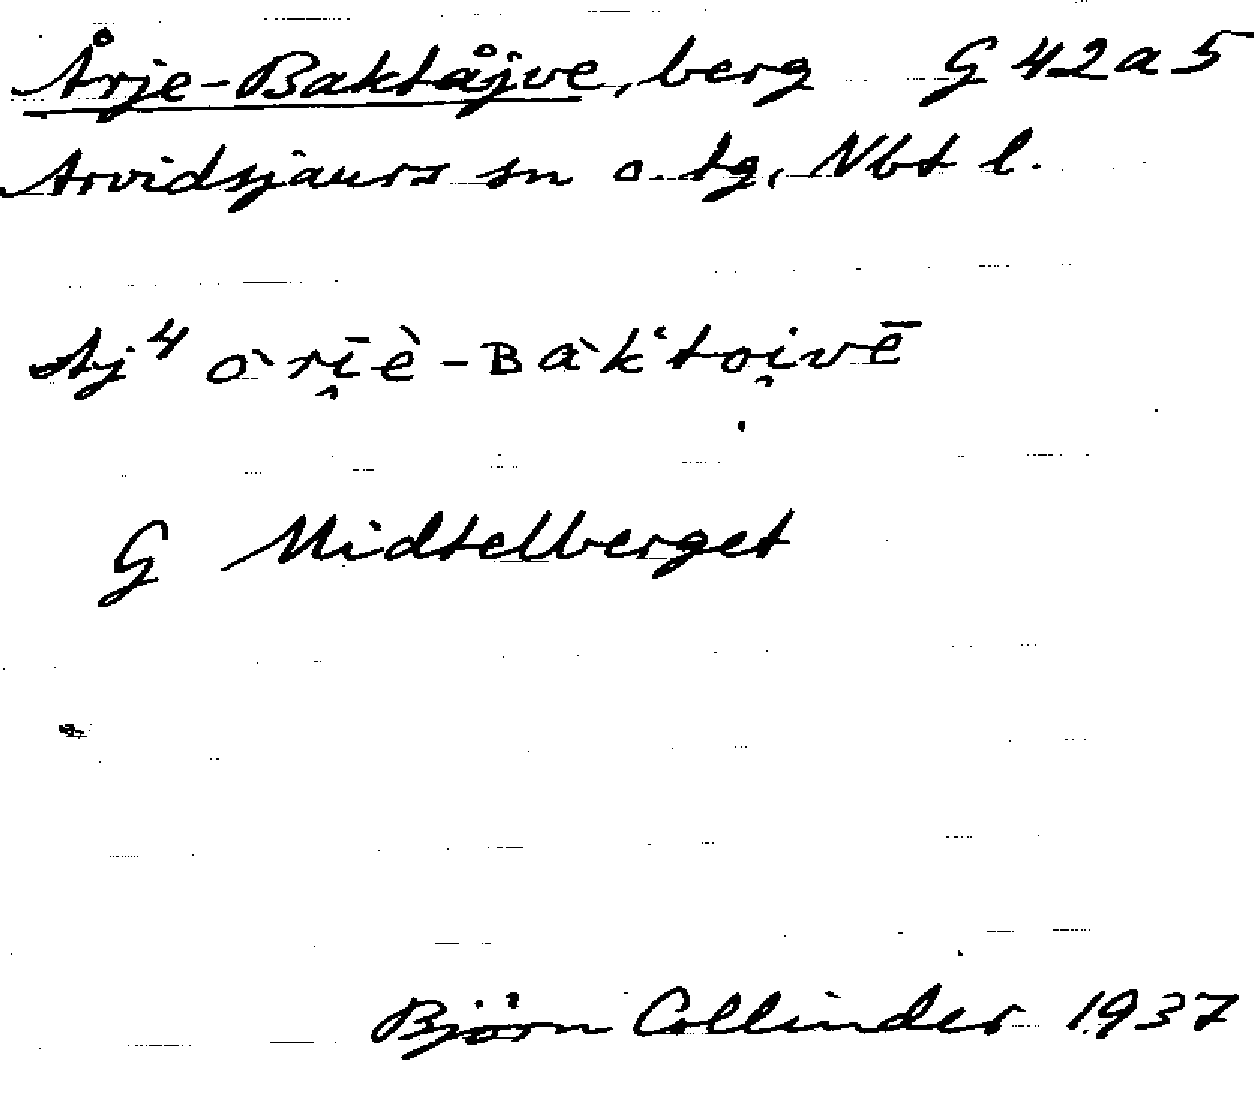 Årje-Baktåjve, berg G 42a5
Arvidsjaurs sn o. tg, Nbt l.
Aj⁴ òrī̯è-ʙàkʻtoi̯vē
G Midtelberget
Björn Collinder 1937